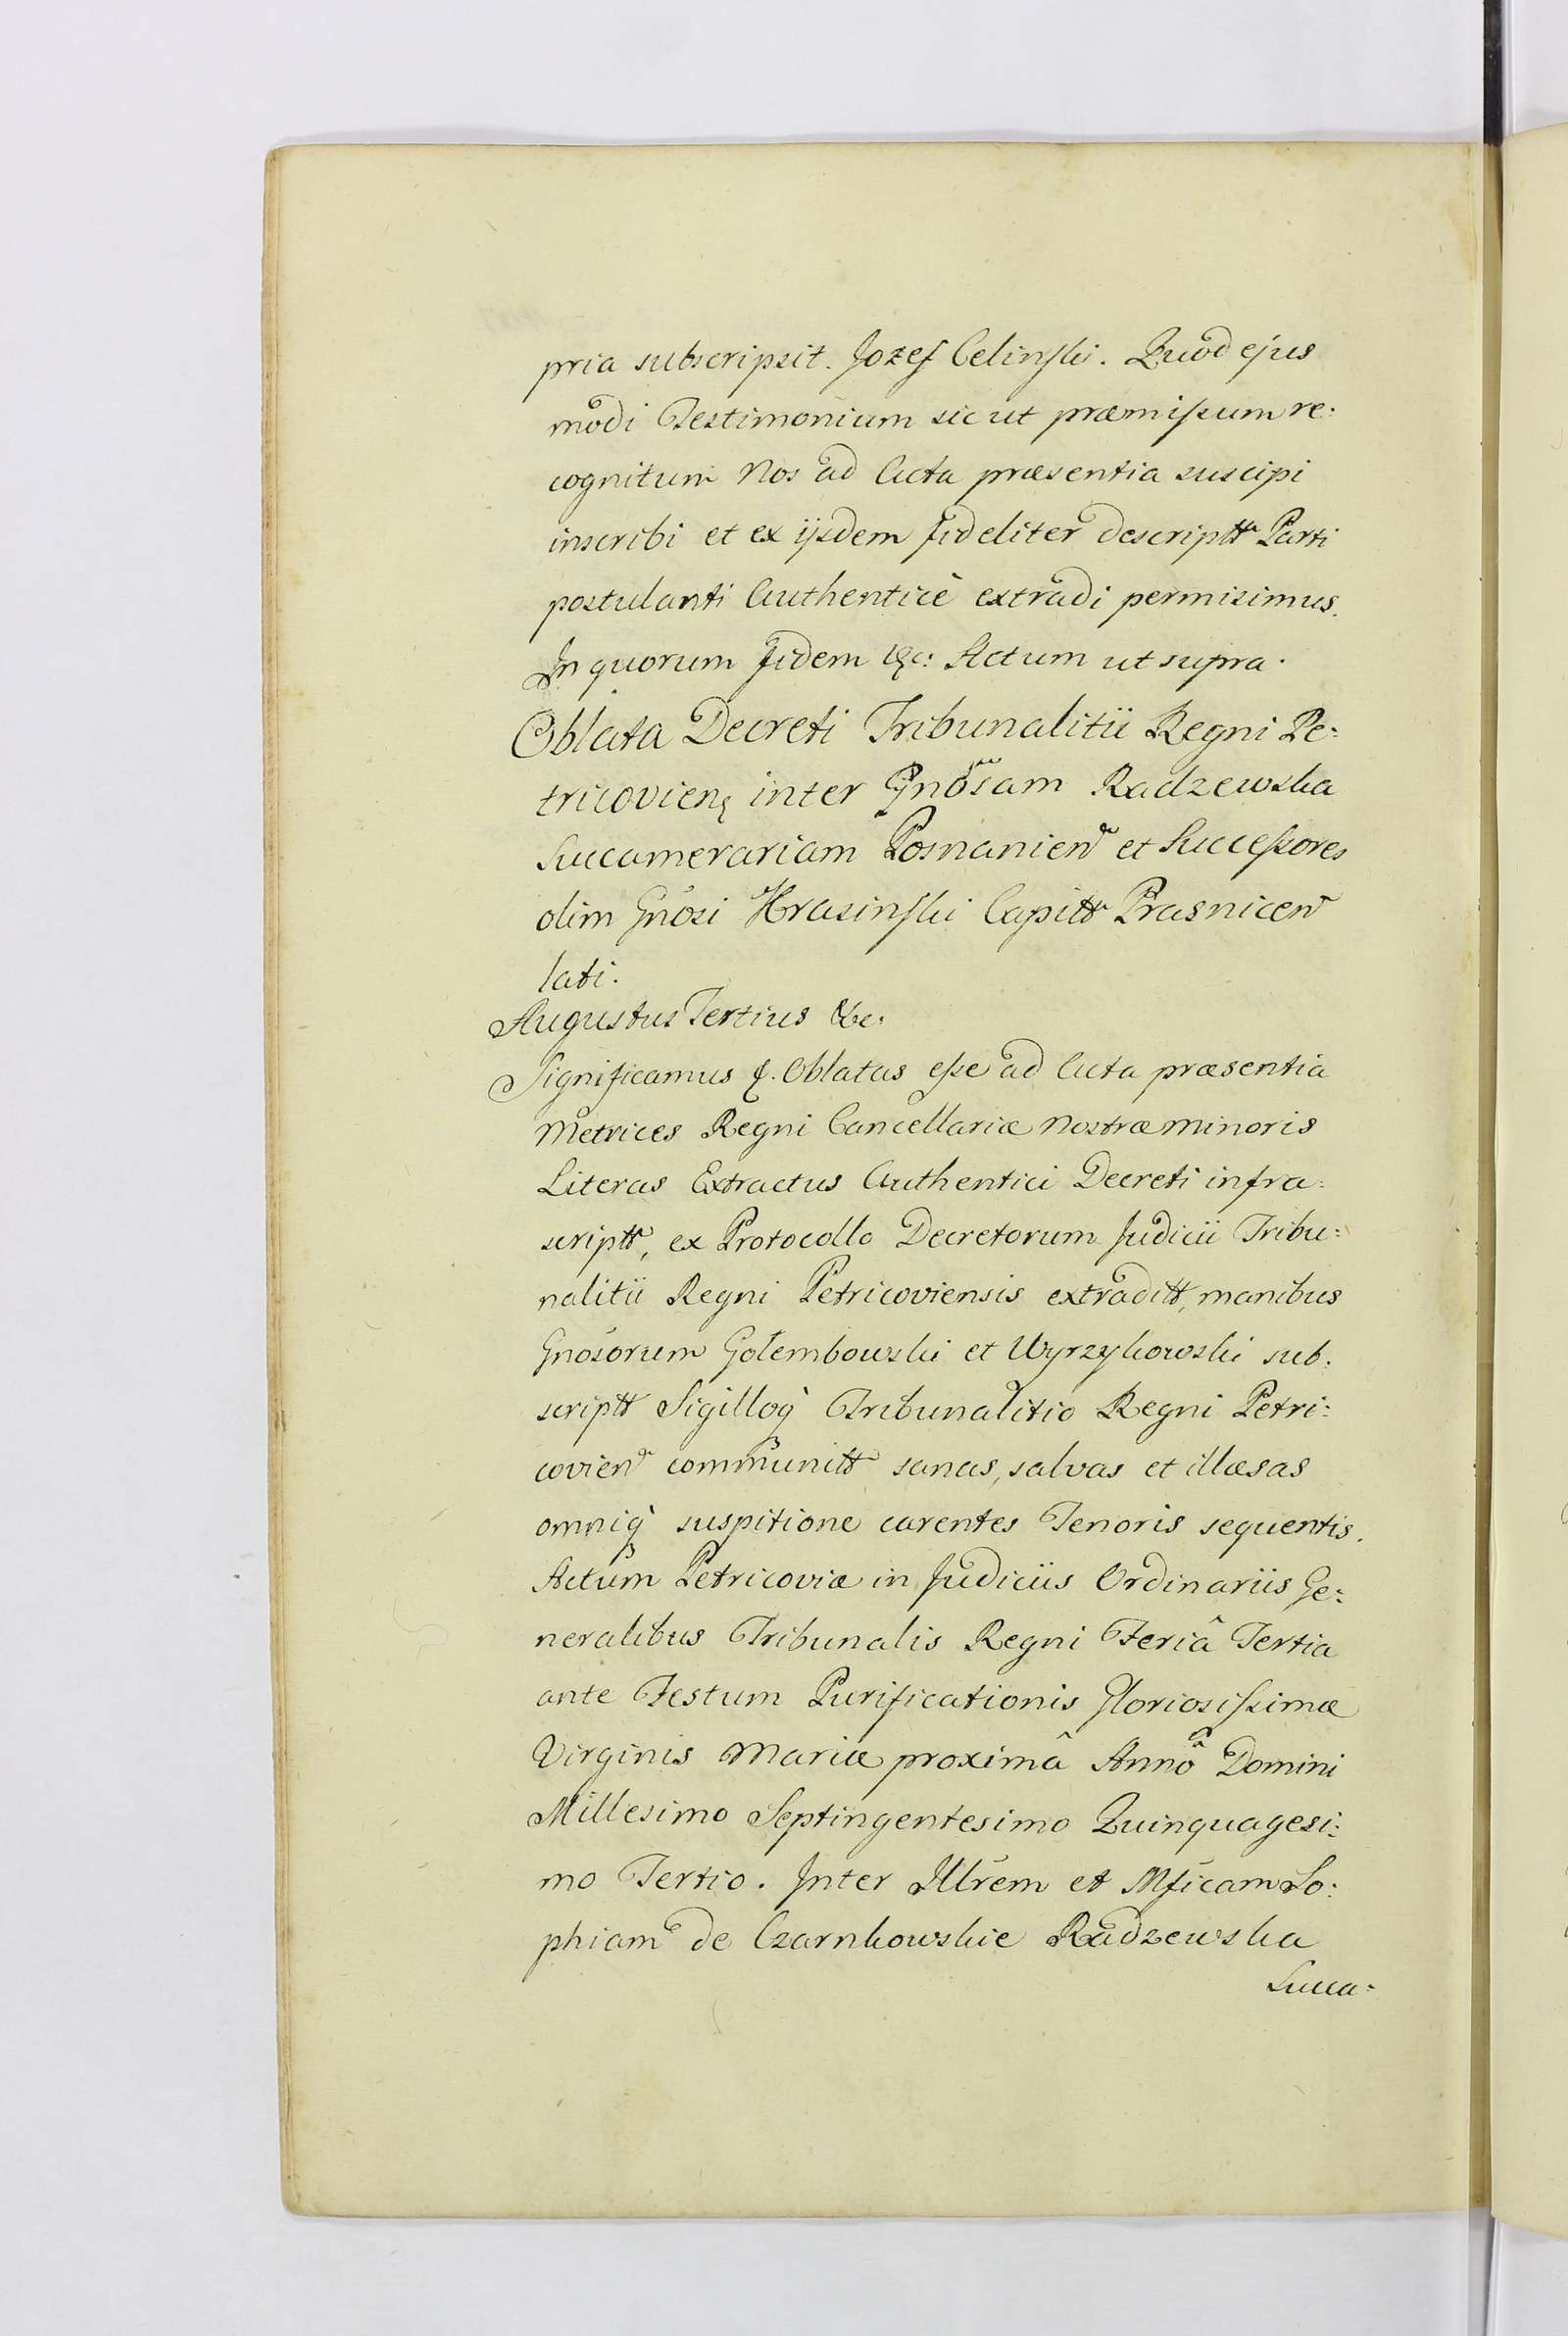 pria subscripsit. Jozef Celinski. Quod ejus
modi Testimonium sic ut præmissum re:
cognitum Nos ad Acta præsentia suscipi
inscribi et ex ijsdem fideliter descriptt Parti
postulanti Authenticè extradi permisimus.
In quorum fidem &c: Actum ut supra.
Oblata Decreti Tribunalitii Regni Pe:
tricovien inter Gnosam Radzewska
Succamerariam Posnanien et Successores
olim Gnosi Krasinski Capitt Prasnicen
lati.
Augustus Tertius &c.
Significamus &. Oblatas esse ad Acta præsentia
Metrices Regni Cancellariæ Nostræ Minoris
Literas Extractus Authentici Decreti infra:
scriptt, ex Protocollo Decretorum Judicii Tribu:
nalitii Regni Petricoviensis extraditt, manibus
Gnosorum Gołembowski et Wyrzykowski sub:
scriptt Sigilloq Tribunalitio Regni Petri:
covien communitt sanas, salvas et illæsas
omniq suspitione carentes Tenoris sequentis.
Actum Petricoviæ in Judiciis Ordinariis Ge:
neralibus Tribunalis Regni Feriâ Tertia
ante Festum Purificationis Gloriosissimæ
Virginis Mariæ proximâ Annô Domini
Millesimo Septingentesimo Quinquagesi:
mo Tertio. Inter Illrem et Mficam So:
phiam de Czarnkowskie Radzewska
Succa: